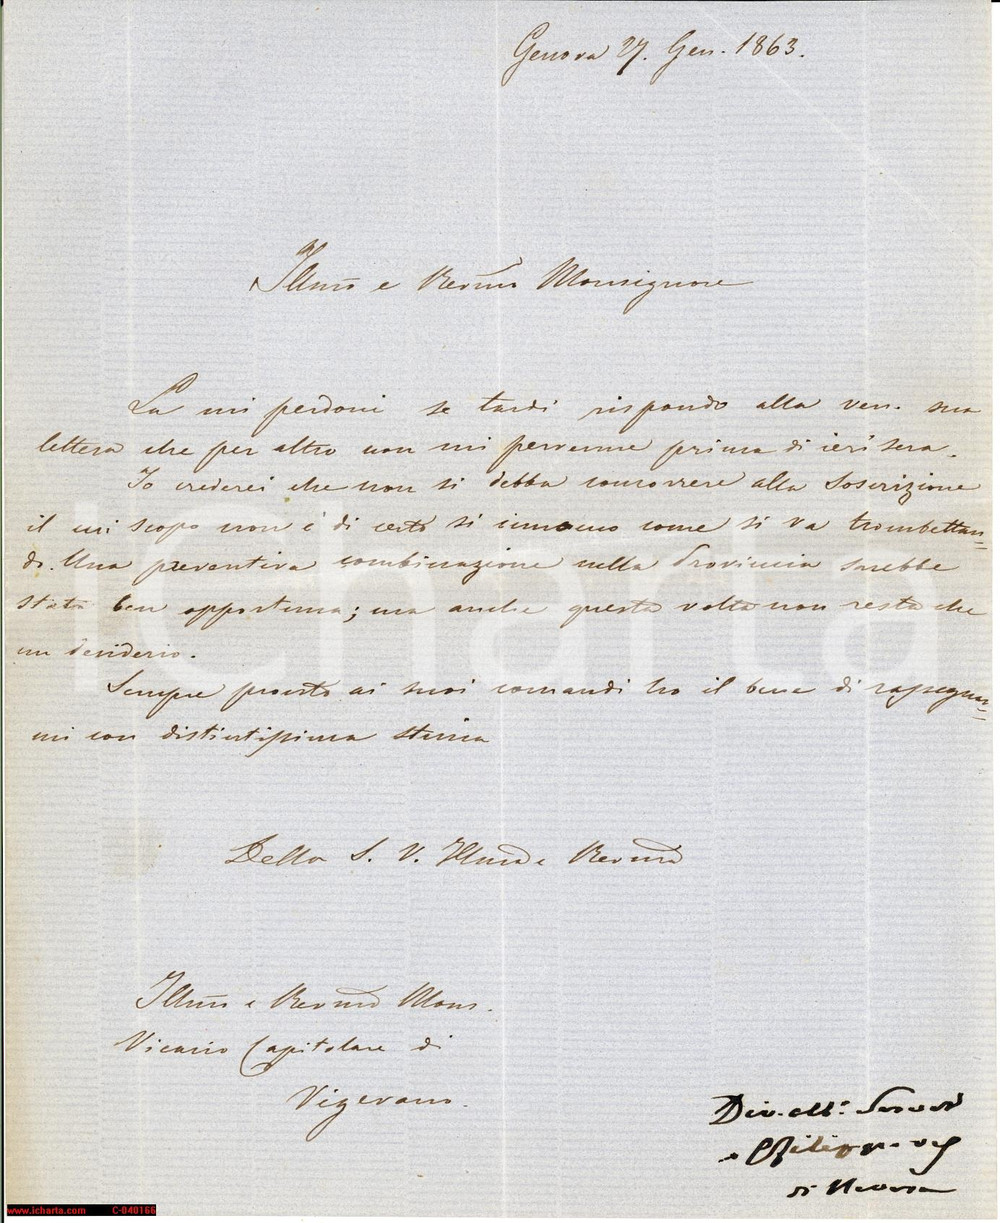 Genova 27. Gen. 1863.
Illmo e Revmo Monsignore
La mi perdoni se tardi rispondo alla ven. sua
lettera che per altro non mi pervenne prima di ieri sera.
Io crederei che non si debba concorrere alla Soscrizione
il cui scopo non è di certo sì innocuo come si va trombettan=
do. Una preventiva combinazione nella Provincia sarebbe
stata ben opportuna; ma anche questa volta non resta che
un desiderio.
Sempre pronto ai suoi comandi ho il bene di rassegnar=
mi con distintissima stima
Della S. V. Illma e Revma
Illmo e Revmo Mons.
Vicario Capitolare di
Vigevano.
Div. Obb. Servo
Filippo
di Novara
iCharta
www.icharta.com C-040166